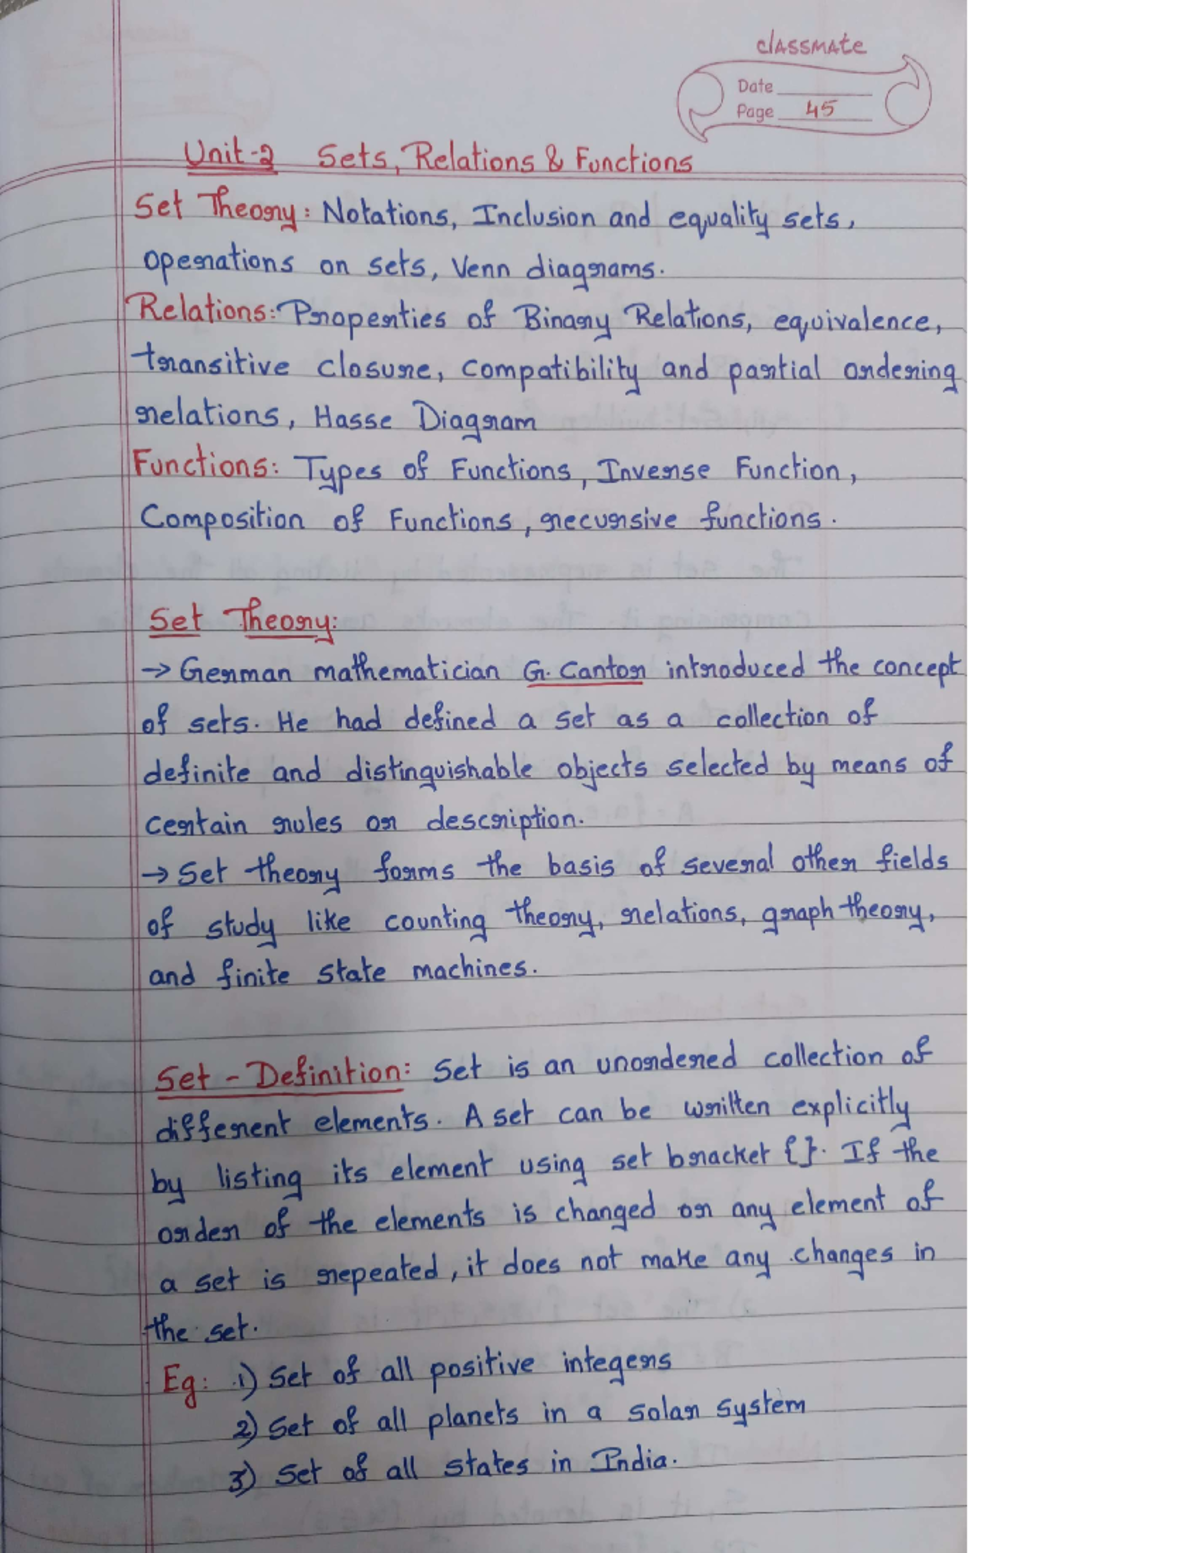 classmate
Date
Page 45
Unit-2 Sets, Relations & Functions
Set Theory: Notations, Inclusion and equality sets,
operations on sets, Venn diagrams.
Relations: Properties of Binary Relations, equivalence,
transitive closure, compatibility and partial ordering
relations, Hasse Diagram
Functions: Types of Functions, Inverse Function,
Composition of Functions, recursive functions.
Set Theory:
→ German mathematician G. Cantor introduced the concept
of sets. He had defined a set as a collection of
definite and distinguishable objects selected by means of
certain rules or description.
→ Set theory forms the basis of several other fields
of study like counting theory, relations, graph theory,
and finite state machines.
Set - Definition: Set is an unordered collection of
different elements. A set can be written explicitly
by listing its element using set bracket {}. If the
order of the elements is changed or any element of
a set is repeated, it does not make any changes in
the set.
Eg: 1) Set of all positive integers
2) Set of all planets in a solar system
3) Set of all states in India.